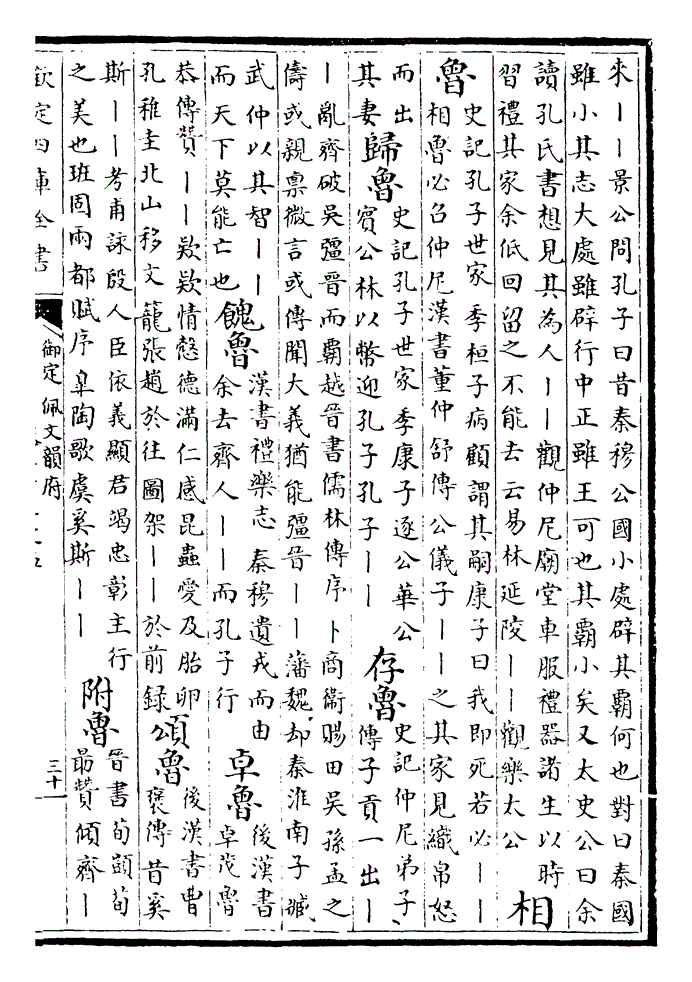 來丨丨景公問孔子曰昔秦穆公國小處辟其霸何也對曰秦國
雖小其志大處雖辟行中正雖王可也其霸小矣又太史公曰余
讀孔氏書想見其為人丨丨觀仲尼廟堂車服禮器諸生以時
習禮其家余低回留之不能去云易林延陵丨丨觀樂太公
相
魯
史記孔子世家 季桓子病顧謂其嗣康子曰我即死若必丨丨
相魯必召仲尼漢書董仲舒傳公儀子丨丨之其家見織帛怒
而出
其妻
歸魯
史記孔子世家季康子逐公華公
賓公林以幣迎孔子孔子丨丨
存魯
史記仲尼弟子
傳子貢一出丨
丨亂齊破吳彊晉而霸越晉書儒林傳序卜商衞賜田吳孫孟之
儔或親禀微言或傳聞大義猶能彊晉丨丨藩魏却秦淮南子臧
武仲以其智丨丨
而天下莫能亡也
餽魯
漢書禮樂志 秦穆遺戎而由
余去齊人丨丨而孔子行
卓魯
後漢書
卓茂魯
恭傳贊丨丨欵欵情慤德滿仁感昆蟲愛及胎卵
孔稚圭北山移文 籠張趙於往圖架丨丨於前錄
頌魯
後漢書曹
褒傳昔奚
斯丨丨考甫詠殷人臣依義顯君竭忠彰主行
之美也班固兩都賦序 臯陶歌虞奚斯丨丨
附魯
晉書荀顗荀
勗贊傾齊丨
欽定四庫全書
御定佩文韻府
三十